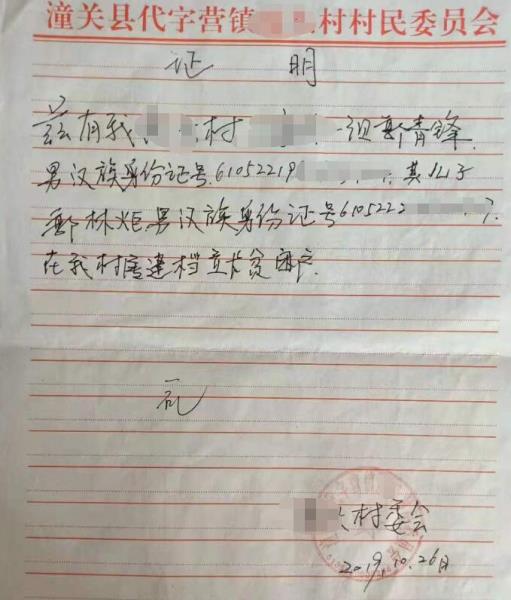 潼关县代字营镇 村村民委员会
证 明
兹有我 村 一组 青锋
男汉族身份证号61052219 其儿子
林炬男汉族身份证号6105222
在我村 建档立卡贫困户
村委会
2019.10.26日